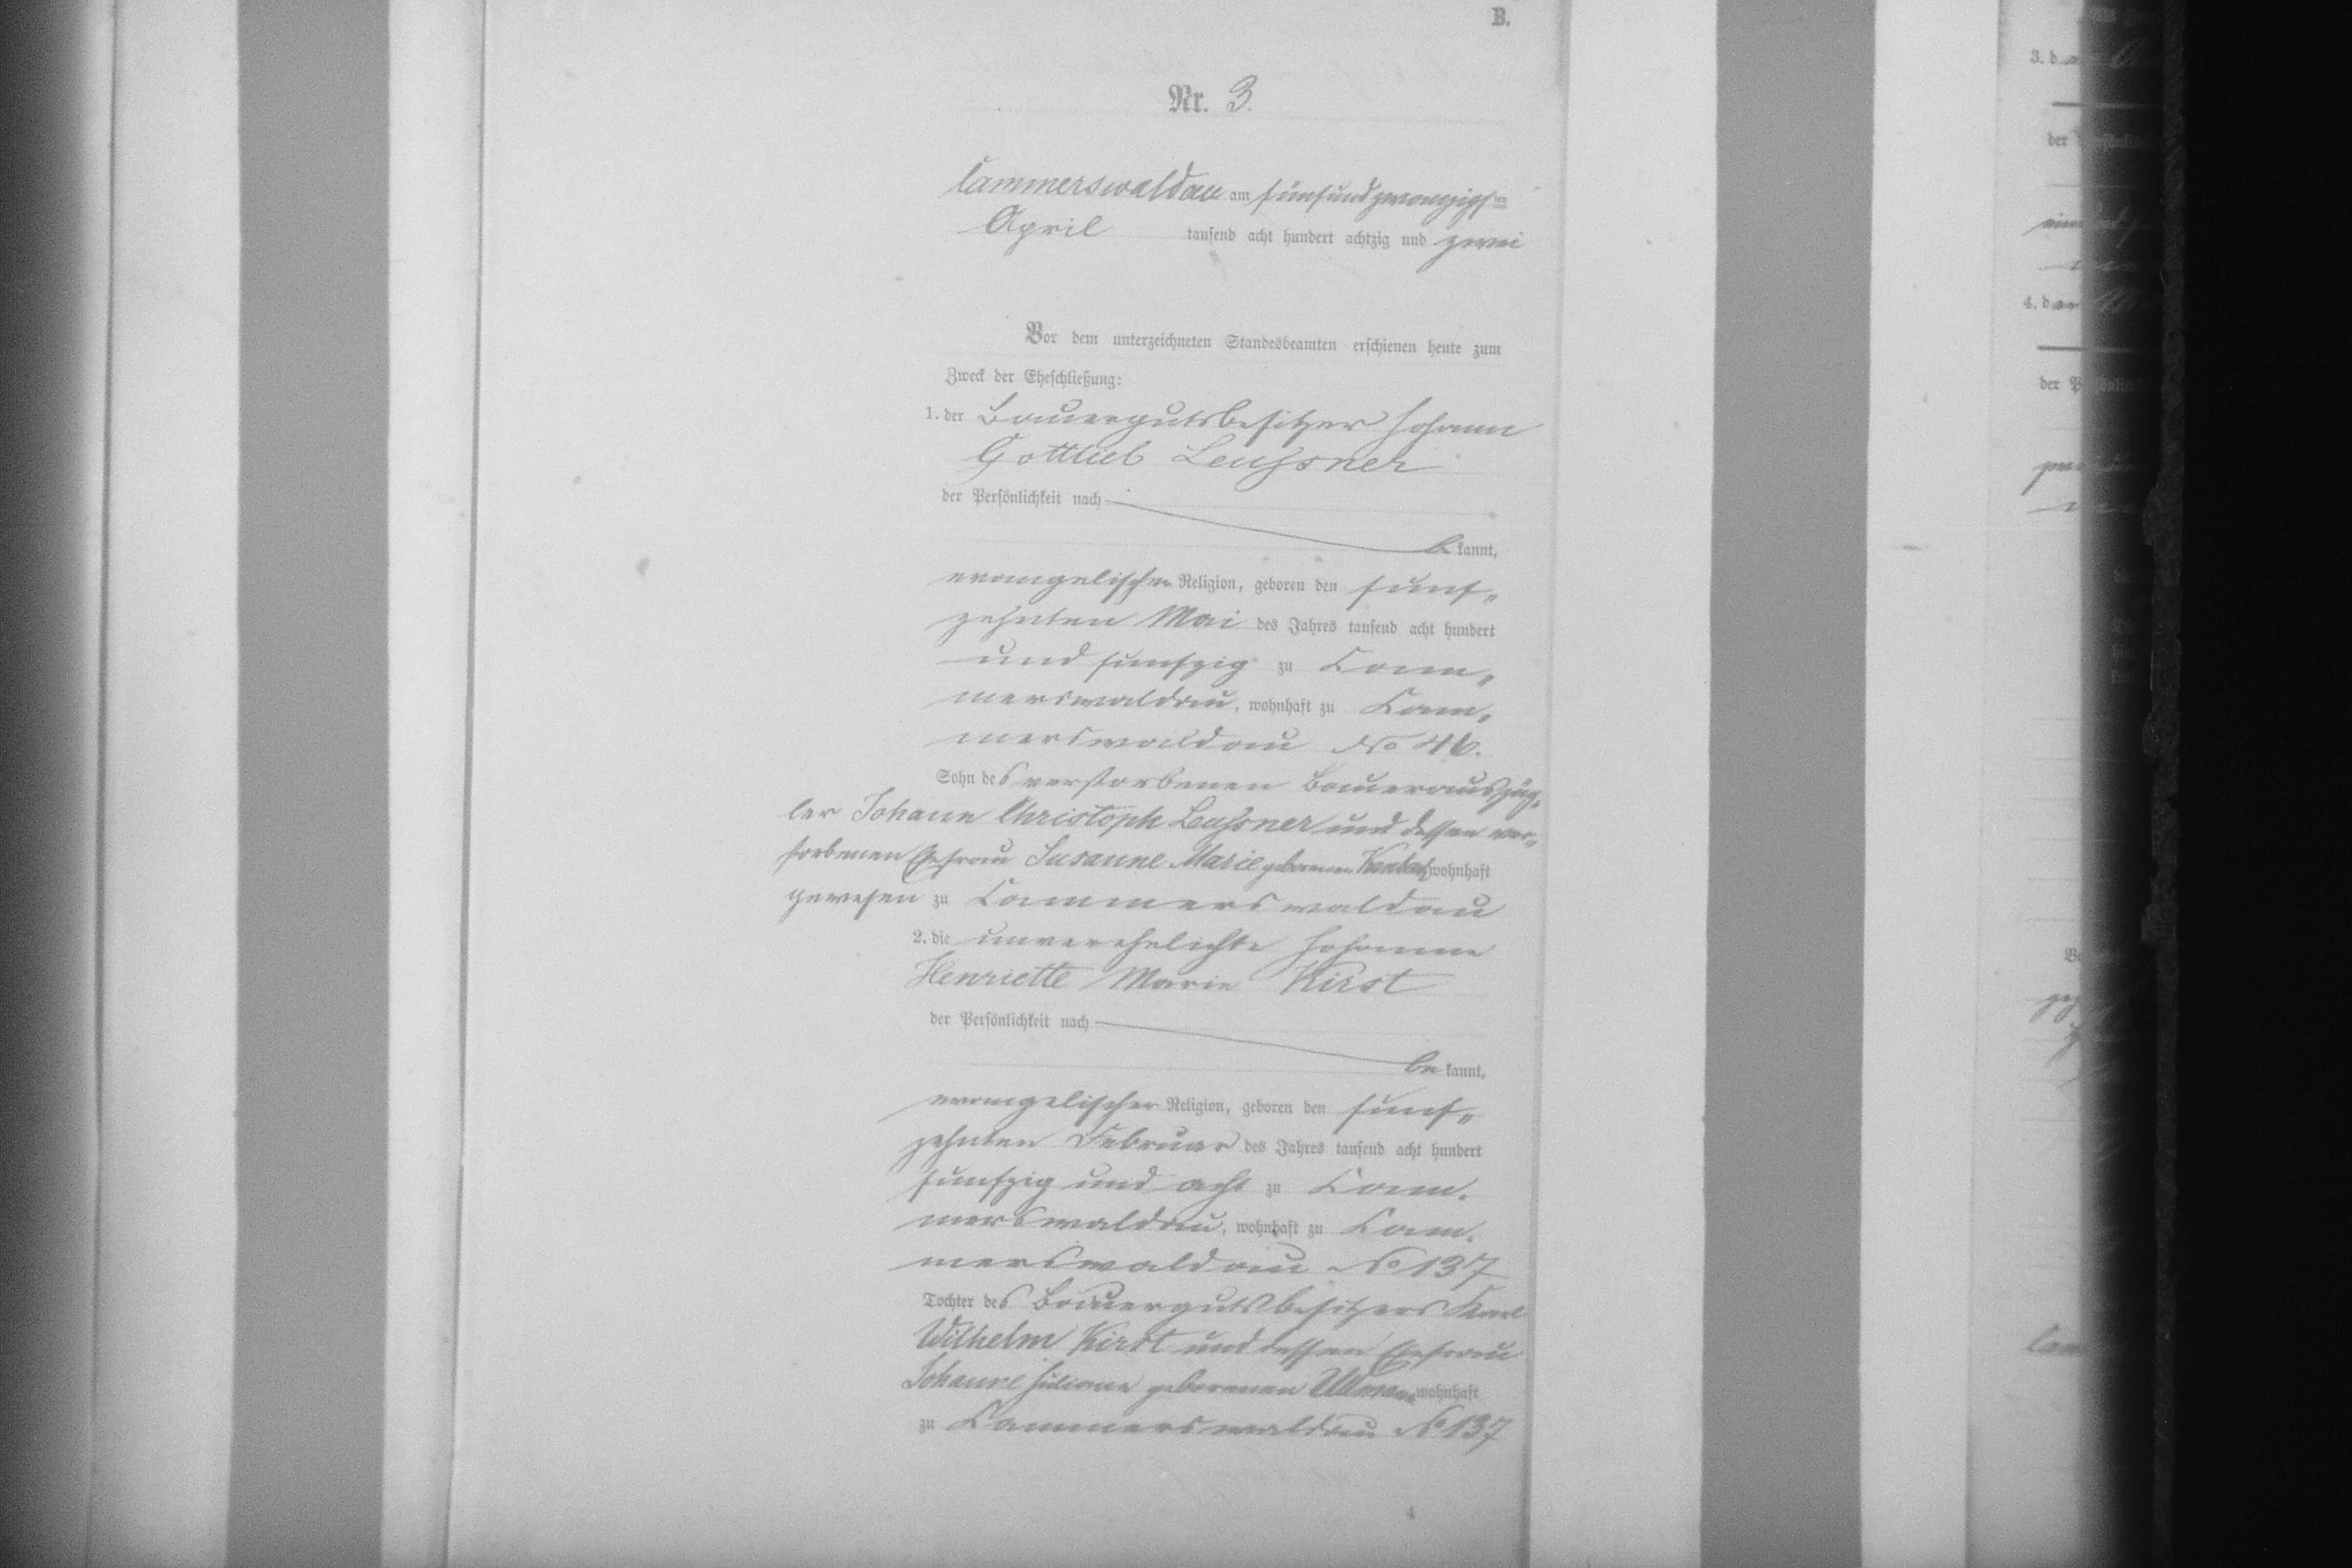 B.
Nr. 3.
Cammerswaldau am fünfundzwanzigsten
April tausend acht hundert achtzig und zwei
Vor dem unterzeichneten Standesbeamten erschienen heute zum
Zweck der Eheschließung:
1. der Bauergutsbesitzer Johann
Gottlieb Leussner
der Persönlichkeit nach
be kannt,
evangelischer Religion, geboren den fünf„
zehnten Mai des Jahres tausend acht hundert
und funfzig zu Cam„
merswaldau, wohnhaft zu Cam„
merswaldau No 46.
Sohn des verstorbenen Bauerauszüg„
ler Johann Christoph Leussner und dessen ver„
storbenen Ehefrau Susanne Marie geborenen wohnhaft
gewesen zu Cammerswaldau
2. die unverehelichte Johanne
Henriette Marie Kirst
der Persönlichkeit nach
be kannt,
evangelischer Religion, geboren den fünf„
zehnten Februar des Jahres tausend acht hundert
funfzig und acht zu Cam„
merswaldau, wohnhaft zu Cam„
merswaldau No 137
Tochter des Bauergutsbesitzers Karl
Wilhelm Kirst und dessen Ehefrau
Johanne Juliane geborenen Ullmann wohnhaft
zu Cammerswaldau No 137
4
3. d
der
4. d
der P